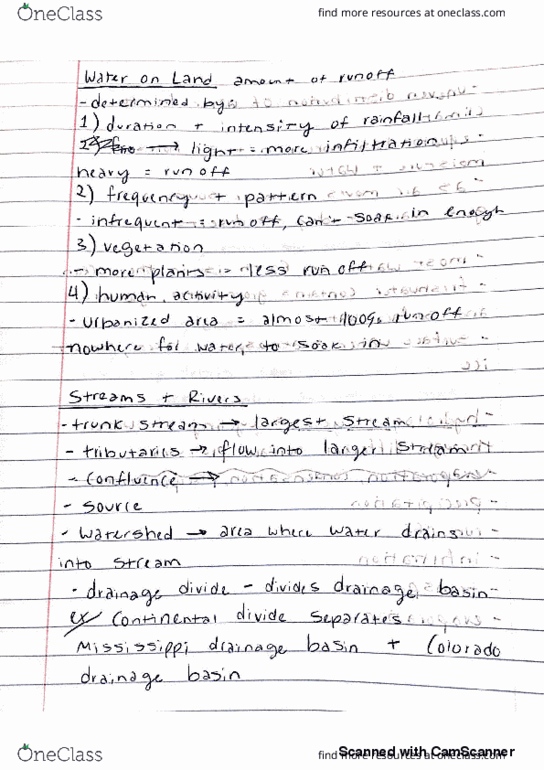 OneClass
find more resources at oneclass.com
Water on Land amount of runoff
- determined by:
1) duration + intensity of rainfall
→ light = more infiltration
heavy = run off
2) frequency + pattern
- infrequent = run off, can't soak in enough
3) vegetation
- more plants = less run off
4) human activity
- urbanized area = almost 100% run off
nowhere for water to soak in
Streams + Rivers
- trunk stream → largest stream
- tributaries → flow into larger stream
- confluence →
- source
- watershed → area where water drains
into stream
- drainage divide - divides drainage basin
ex/ Continental divide separates
Mississippi drainage basin + Colorado
drainage basin
OneClass
find more resources at oneclass.com
Scanned with CamScanner